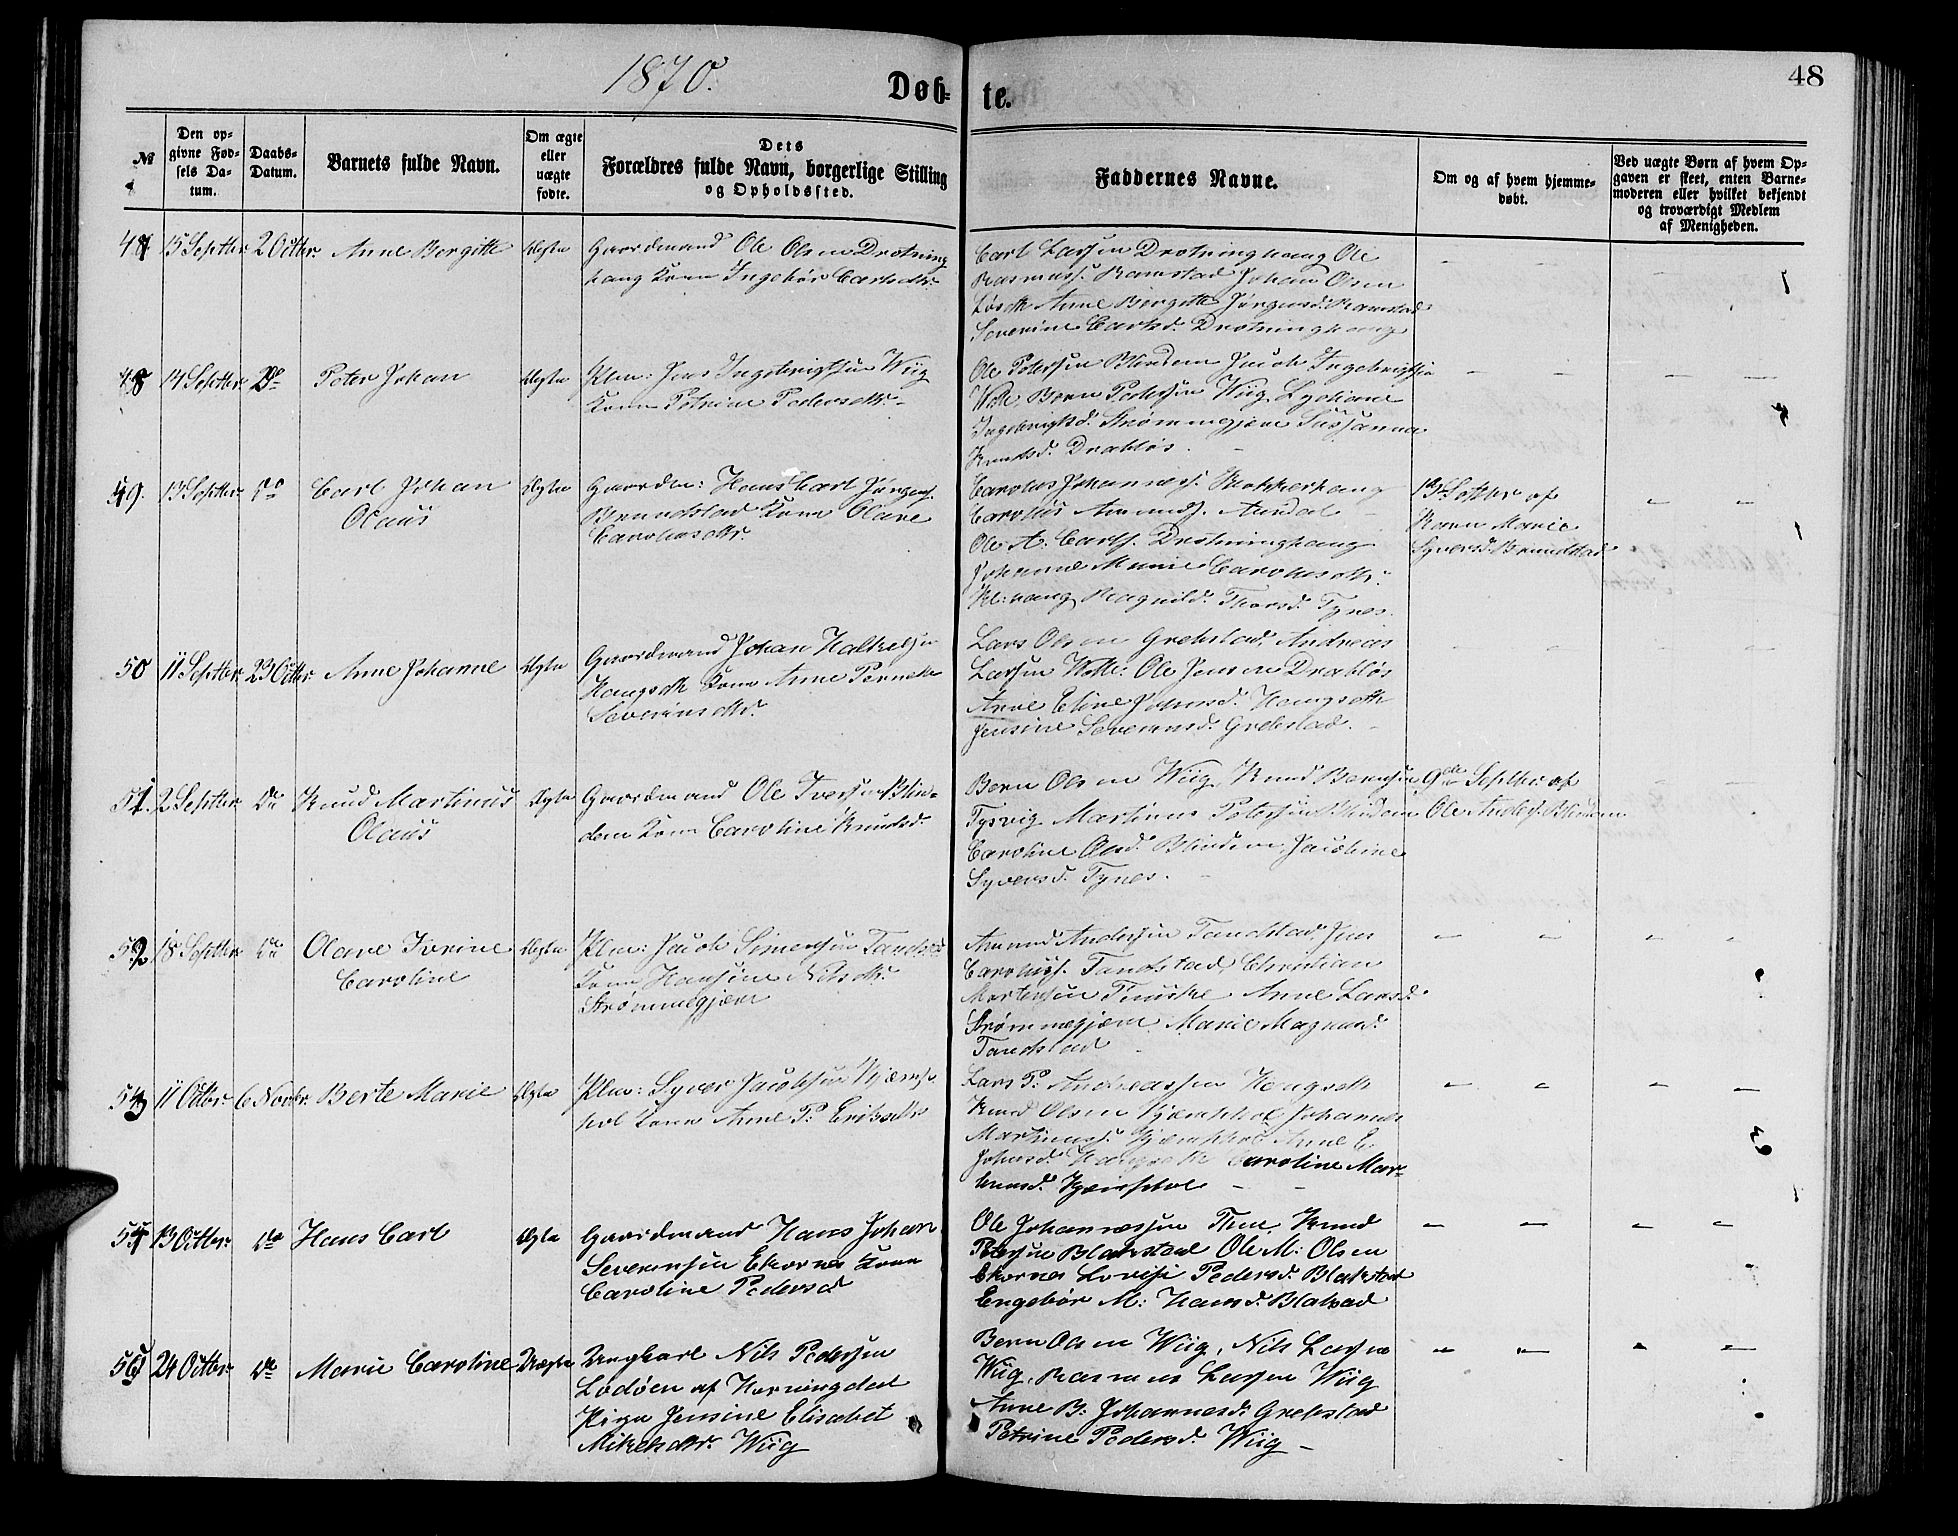 1870.
Døb-te.
48
№
Den op-
givne Fød-
sels Da-
tum.
Daabs-
Datum.
Barnets fulde Navn.
Om ægte
eller
uægte
fødte.
Dets
Forældres fulde Navn, borgerlige Stilling
og Opholdssted.
Faddernes Navne.
Om og af hvem hjemme-
døbt.
Ved uægte Børn af hvem Op-
gaven er skeet, enten Barne-
moderen eller hvilket bekjendt
og troværdigt Medlem
af Menigheden.
47 15 Septbr. 2 Octbr. Anne Bergitte Ægte
Gaardmand Ole Olsen Drotning
haug Kone Ingebør Carlsdtr.
Carl Larsen Drotninghaug Ole
Rasmuss. Ramstad Johan Olsen
Anne Bergitte Jørgensd. Ramstad
Severine Carlsd. Drotninghaug
48 14 Septbr. Do Peter Johan Ægte
Plm: Jens Ingebrigtsen Wiig
Kone Petrine Pedersdtr. -
Ole Petersen Blindem Jacob Ingebrigtsen
Bern Pedersen Wiig Lydiane
Ingebrigtsd. Strømmegjere Sussanna
Knudsd. Drabløs. -
49. 13 Septbr. Do Carl Johan
Olaus Ægte
Gaardm: Hans Carl Jørgens.
Brunstad Kone Olave
Carolusdtr.
Carolus Johannes. Klokkerhaug
Carolus Amunds. Aurdal -
Ole A. Carls. Drotninghaug
Johanne Marie Carolusdtr.
Kl:haug Ragnild Thorsd. Tynes.
13 Septbr af
Karen Marie
Syversd. Brundstad
50 11 Septbr. 23 Octbr. Anne Johanne Ægte
Gaardmand Johan
Haugseth Kone Anne Pernelle
Severinsdtr.
Lars Olsen Grebstad. Andreas
Larsen Ole Jensen Drabløs
Anne Eline Johnsd. Haugseth
Jensine Severinsd. Grebstad. -
51. 2 Septbr. Do Knud Martinus
Olaus Ægte
Gaardmand Ole Iversen Blin-
dem Kone Caroline Knudsd.
Bern Olsen Wiig, Knud Bernsen
Tysvig Martinus Petersen Blindem
Caroline Olsd. Blindem, Jacobine
Syversd. Tynes. -
9de Septbr. af
Ole Anders. Blindem
52 18 Septbr. Do Olave Iverine
Caroline Ægte
Plm: Jacob Simensen Tandstad
Kone Hansine Nilsdtr.
Strømmegjere
Amund Andersen Tandstad, Jens
Carolus. Tandstad, Christian
Martensen Anne Larsd.
Strømmegjere Marie Magnusd.
Tandstad -
53 11 Octbr. 6 Novbr. Berte Marie Ægte
Plm: Syver Jacobsen Kjæmp-
hol Kone Anne P: Eriksdtr
Lars P: Andreassen Haugseth
Knud Olsen Kjæmphol Johannes
Martinuss. Kjæmphol Anne E.
Johnsd. Haugseth Caroline Mar-
tinusd. Kjæmphol - -
54 13 Octbr. Do Hans Carl Ægte
Gaardmand Hans Johan
Severinsen Ekornes Kone
Caroline Pedersd
Ole Johannessen Thue, Knud
Petersen Blakstad Ole M: Olsen
Ekornes Lovise Pedersd. Blakstad
Engebør M: Hansd. Blakstad
55 24 Octbr. Do Marie Caroline Uægte
Ungkarl Nils Pedersen
Lodøen af Horningdal
Pige Jensine Elisabet
Mikelsdtr. Wiig
Bern Olsen Wiig, Nils Larsen
Wiig, Rasmus Larsen Wiig
Anne B: Johannesd. Grebstad
Petrine Pedersd. Wiig -